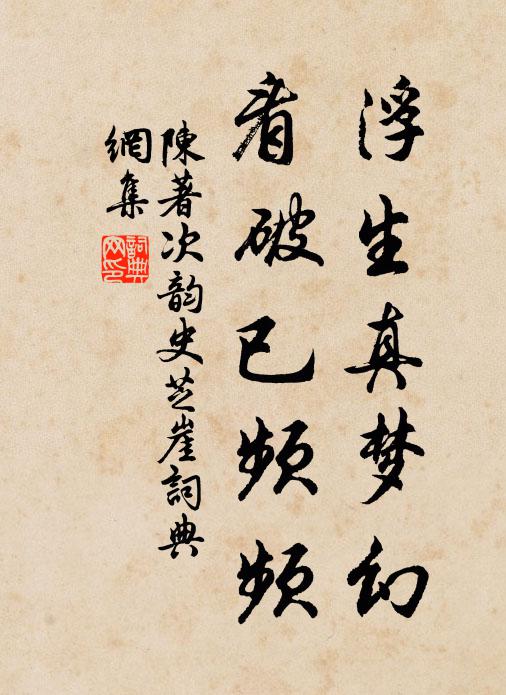 浮生真梦幻
看破已频频
陳著次韵史芝崖詞典
網集
詞典
网印